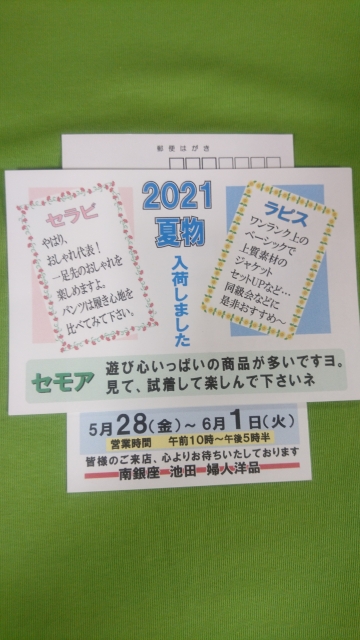 郵便はがき
2021
夏物
入荷しました
セラビ
やはり、
おしゃれ代表！
一足先のおしゃれを
楽しめますよ。
パンツは履き心地を
比べてみて下さい。
ラピス
ワンランク上の
ベーシックで
上質素材の
ジャケット
セットUPなど…
同級会などに
是非おすすめ〜
セモア
遊び心いっぱいの商品が多いですヨ。
見て、試着して楽しんで下さいネ
5月28(金)〜6月1日(火)
営業時間 午前10時〜午後5時半
皆様のご来店、心よりお待ちいたしております
南銀座 池田 婦人洋品